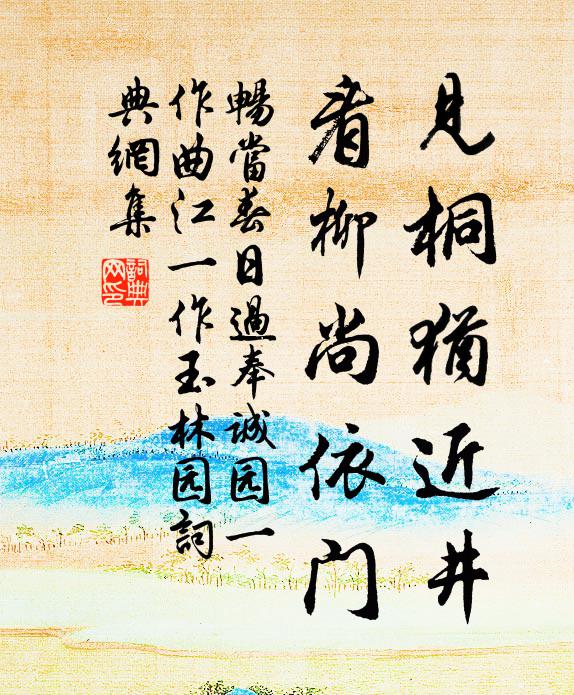 見桐猶近井
看柳尚依門
暢當春日過奉誠园一
作曲江一作玉林园詞
典網集
詞典
网印